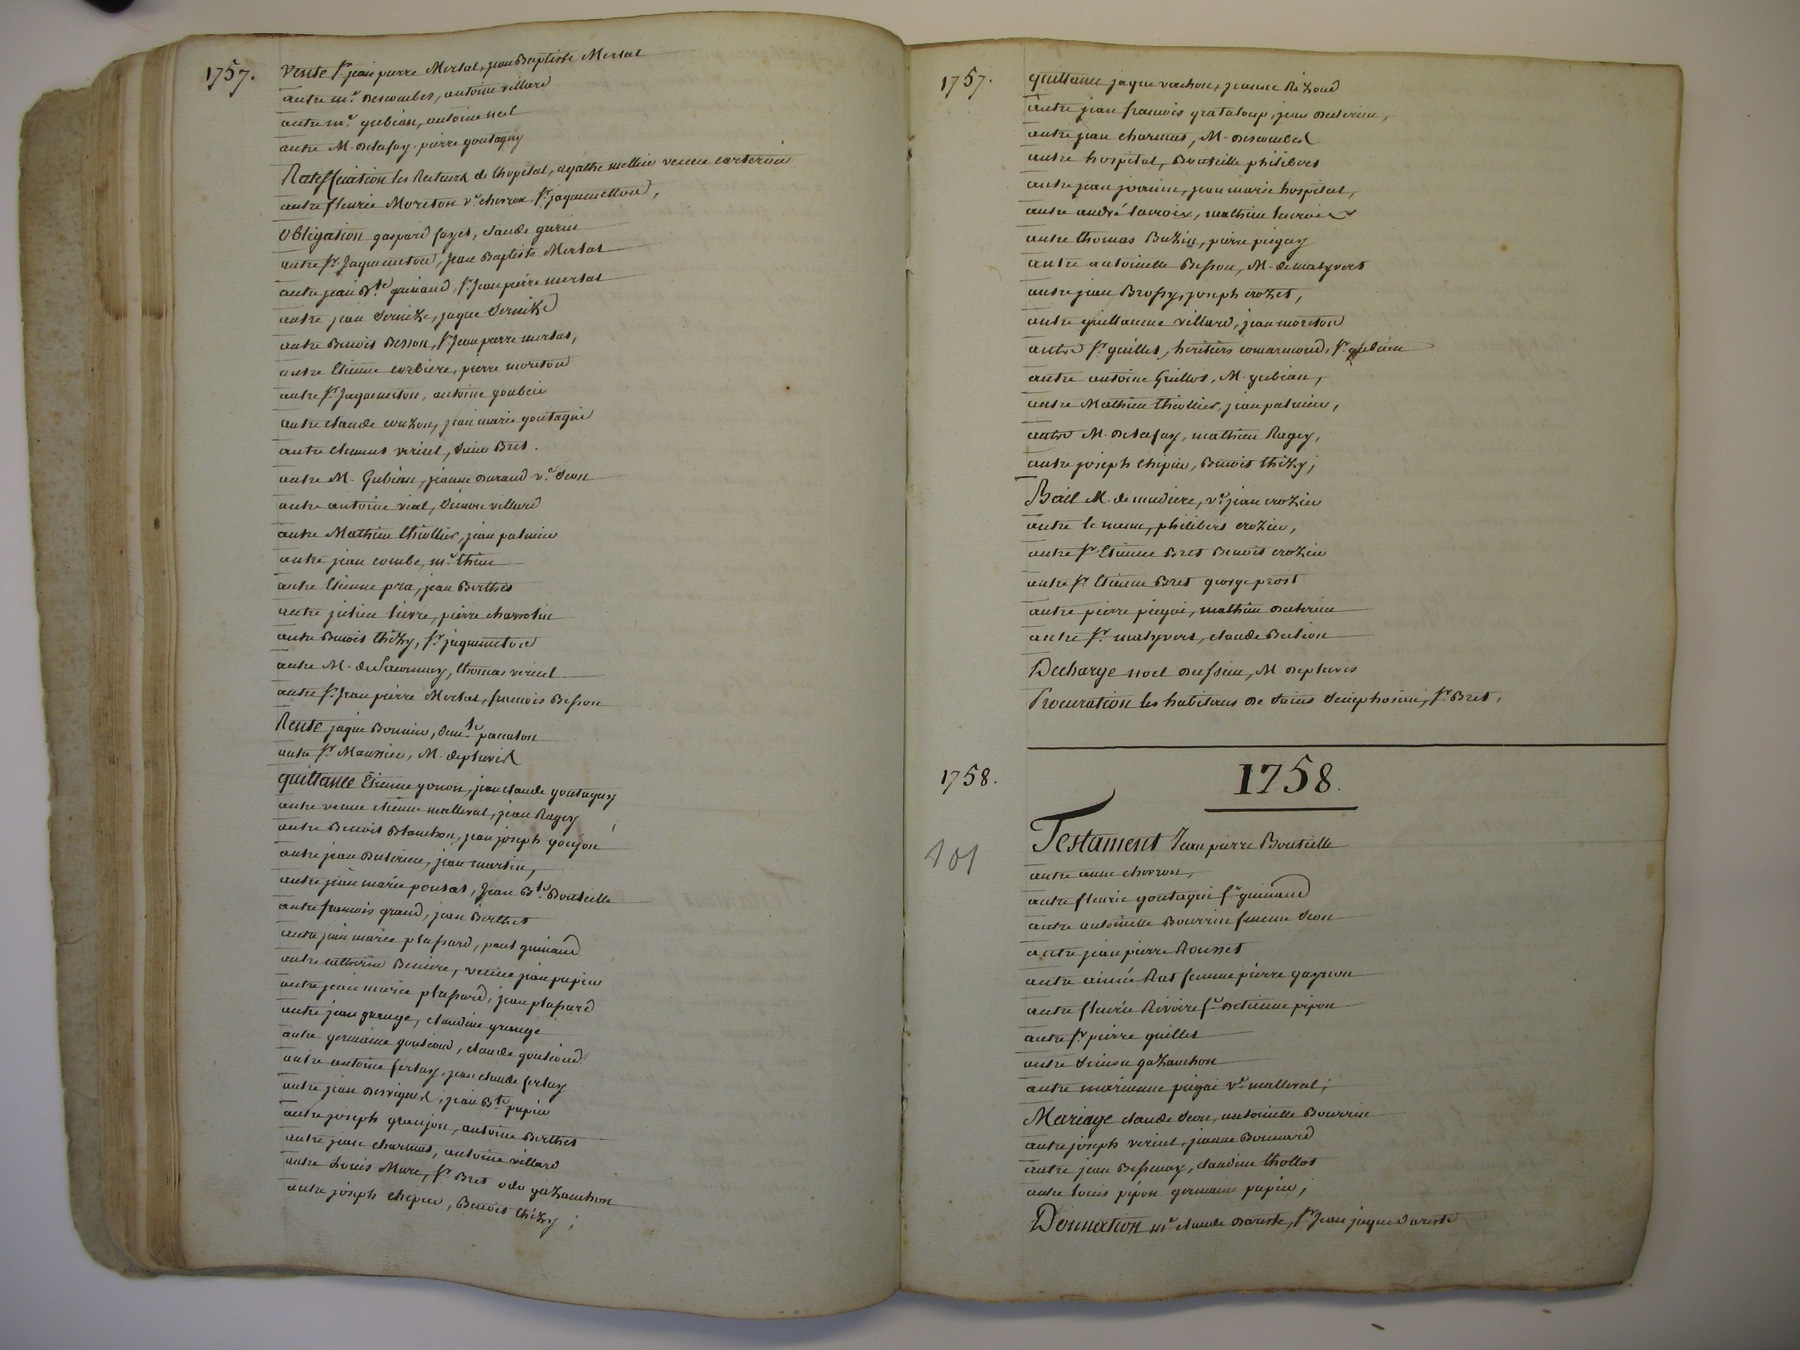 1757. Vente Sr. jean pierre Mertat, jean Baptiste Mertat
autre mr. Descombes, antoine villard
autre mr. gubian, antoine neel
autre M. Delafay, pierre goutagny
Rateffication les Recteurs de lhopital, agathe mellier veuve
autre fleurie Moreton ve. chorron, Sr. jaquemetton,
obligation gaspard fayet, claude garin
autre Sr. Jaquemeton, Jean Baptiste Mertat
autre jean Bte. guinand, Sr. Jean pierre mertat
autre jean Jernike, jaque Jernike
autre Benoit Besson, Sr. Jean pierre mertat,
autre Etienne corbiere, pierre moreton
autre Sr. Jaquemeton, antoine
autre claude couzon, jean marie goutagni
autre clement vericel, Bret.
autre M. Gubian, jeanne Durand ve. Jeon
autre antoine vial, Simon villard
autre Mathieu thiollier, jean palmier
autre jean combe, mr. thieu
autre Etienne pra, jean Berthet
autre julien lievre, pierre
autre Benoit thizy, Sr. jaquemeton
autre M. thomas vericel
autre Sr. Jean pierre Mertat, francois Besson
Rente jaque Bonnier,
autre Sr. Maunier, M.
quittance Etienne gonon, jean claude goutagny
autre veuve etienne malleval, jean Ragey
autre Benoit Blanchon, jean joseph goujon
autre jean Duterieu, jean martin,
autre jean marie ponsat, Jean Bte. Bouteille
autre francois grand, jean Berthet
autre jean marie plassard, paul guinand
autre catherine Beniere, veuve jean papiu
autre jean marie plassard, jean plassard
autre jean grange, claudine grange
autre germaine goutaud, claude goutaud
autre antoine ferlay, jean claude ferlay
autre jean Desvignes, jean Bte. papiu
autre joseph granjon, antoine Berthet
autre jean charmat, antoine villard
autre Louis Mure, Sr. Bret gazanchon
autre joseph chipier, Benoit thizy;
1757. quittance jaque vachon, jeanne Rizoud
autre jean francois grataloup, jean Duterieu,
autre jean charmat, M. Descombes
autre hospital, Bouteille philibert
autre jean hospital,
autre andré Lacroix, mathieu Lacroix
autre thomas Buzin, pierre piegay
autre antoinette Besson, M. de matyvert
autre jean Brossy, joseph crozet,
autre guillaume villard, jean moreton
autre Sr. guillet, heritiers comarmond, Sr. gubian
autre antoine Guillot, M. gubian,
autre Mathieu thiollier, jean palmier,
autre M. Delafay, mathieu Ragey,
autre joseph chipier, Benoit thizy;
Bail M. de mediere, ve. jean crozier
autre le meme, philibert crozier,
autre Sr. Etienne Bret Benoit crozier
autre Sr. Etienne Bret george prost
autre pierre piegai, mathieu Duterieu
autre Sr. matyvert, claude
Decharge noel Dussieu, M
Procuration les habitans de Saint Simphorien, Sr. Bret,
1758.
1758.
101
Testament Jean pierre Bouteille
autre anne chorron,
autre fleurie goutagni fe. guinand
autre antoinette Bourrin femme Jeon
autre jean pierre Rousset
autre aimée Rat femme pierre gagnon
autre fleurie Rivoire fe. Detienne pipon
autre Sr. pierre guillet
autre Simon gazanchon
autre marianne piegai ve. malleval;
Mariage claude Jeon, antoinette Bourrin
autre joseph vericel, jeanne Bonnard
autre jean Bessenay, claudine thollot
autre louis pipon germaine papiu;
Donnation mr. claude Dareste, Sr. Jean jaque Dareste